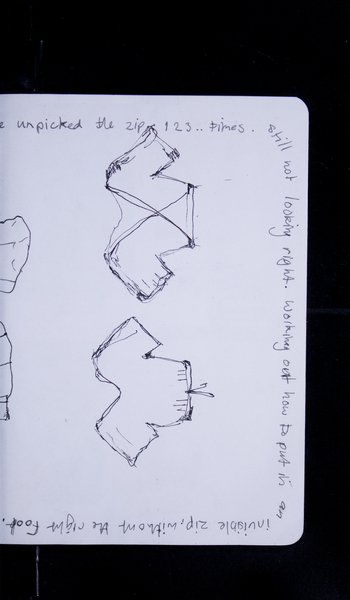 unpicked the zip 123.. times.
still not looking right. Working out how to put in an
invisible zip, without the right foot.